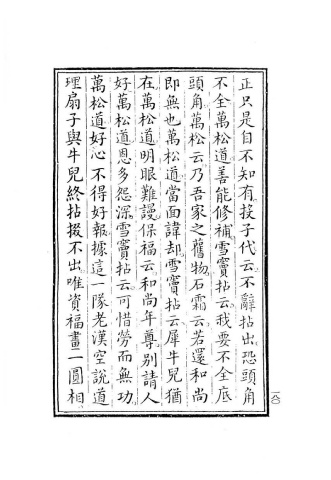 正只是自不知有投子代云不辭拈出恐頭角
不全萬松道善能修補雪竇拈云我要不全底
頭角萬松云乃吾家之舊物石霜云若還和尚
即無也萬松道當面諱却雪竇拈云犀牛兒猶
在萬松道明眼難謾保福云和尚年尊別請人
好萬松道恩多怨深雪竇拈云可惜勞而無功
萬松道好心不得好報據這一隊老漢空說道
理扇子與牛兒終拈掇不出唯資福畫一圓相